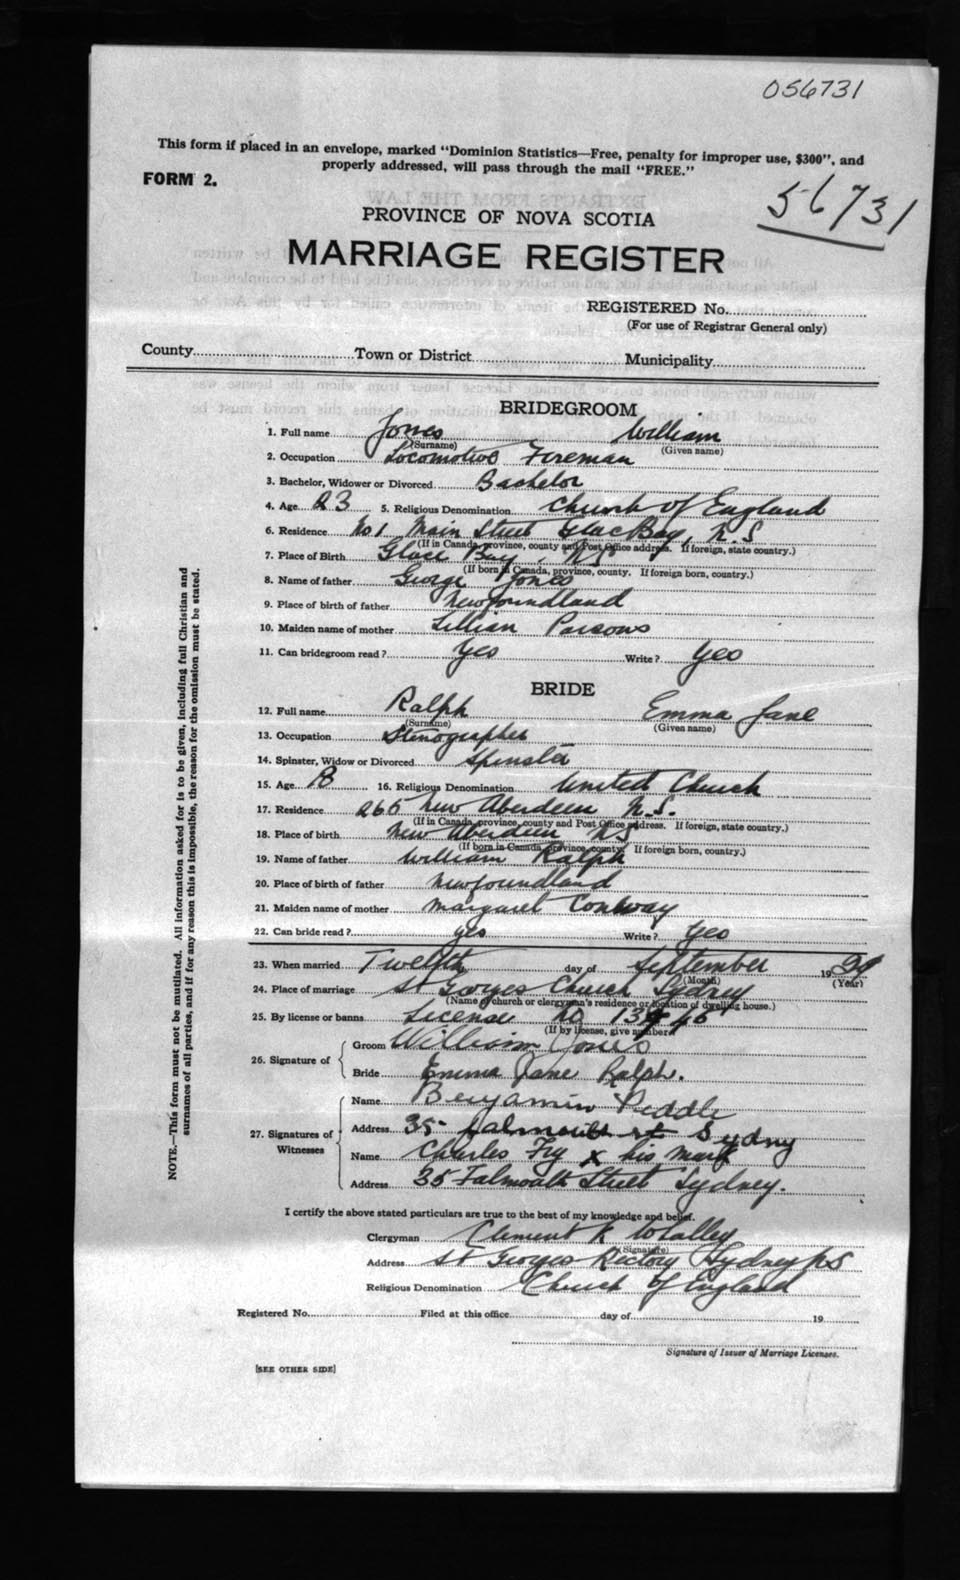 056731
This form if placed in an envelope, marked "Dominion Statistics—Free, penalty for improper use, $300", and
properly addressed, will pass through the mail "FREE."
FORM 2.
56731
PROVINCE OF NOVA SCOTIA
MARRIAGE REGISTER
REGISTERED No.
(For use of Registrar General only)
County Town or District Municipality
BRIDEGROOM
1. Full name Jones William
(Surname) (Given name)
2. Occupation Locomotive Foreman
3. Bachelor, Widower or Divorced Bachelor
4. Age 23 5. Religious Denomination Church of England
6. Residence No 1 Main Street Glace Bay, N.S
(If in Canada, province, county and Post Office address. If foreign, state country.)
7. Place of Birth Glace Bay, NS
(If born in Canada, province, county. If foreign born, country.)
8. Name of father George Jones
9. Place of birth of father Newfoundland
10. Maiden name of mother Lillian Parsons
11. Can bridegroom read? Yes Write? Yes
BRIDE
12. Full name Ralph Emma Jane
(Surname) (Given name)
13. Occupation Stenographer
14. Spinster, Widow or Divorced Spinster
15. Age 18 16. Religious Denomination United Church
17. Residence 265 New Aberdeen N.S.
(If in Canada, province, county and Post Office address. If foreign, state country.)
18. Place of birth New Aberdeen NS
(If born in Canada, province, county. If foreign born, country.)
19. Name of father William Ralph
20. Place of birth of father Newfoundland
21. Maiden name of mother Margaret Conway
22. Can bride read? yes Write? Yes
23. When married Twelfth day of September 1929
(Month) (Year)
24. Place of marriage St Georges Church Sydney
(Name of church or clergyman's residence or location of dwelling house.)
25. By license or banns License No
(If by license, give number)
26. Signature of Groom William Jones
Bride Emma Jane Ralph.
27. Signatures of Witnesses
Name Benjamin Peddle
Address 35 Falmouth st Sydny
Name Charles Fry x his mark
Address 35 Falmouth Street Sydney.
I certify the above stated particulars are true to the best of my knowledge and belief.
Clergyman Clement K Whalley
(Signature)
Address St Georges Rectory Sydney NS
Religious Denomination Church of England
Registered No. Filed at this office day of 19
Signature of Issuer of Marriage Licenses.
[SEE OTHER SIDE]
NOTE.—This form must not be mutilated. All information asked for is to be given, including full Christian and
surnames of all parties, and if for any reason this is impossible, the reason for the omission must be stated.